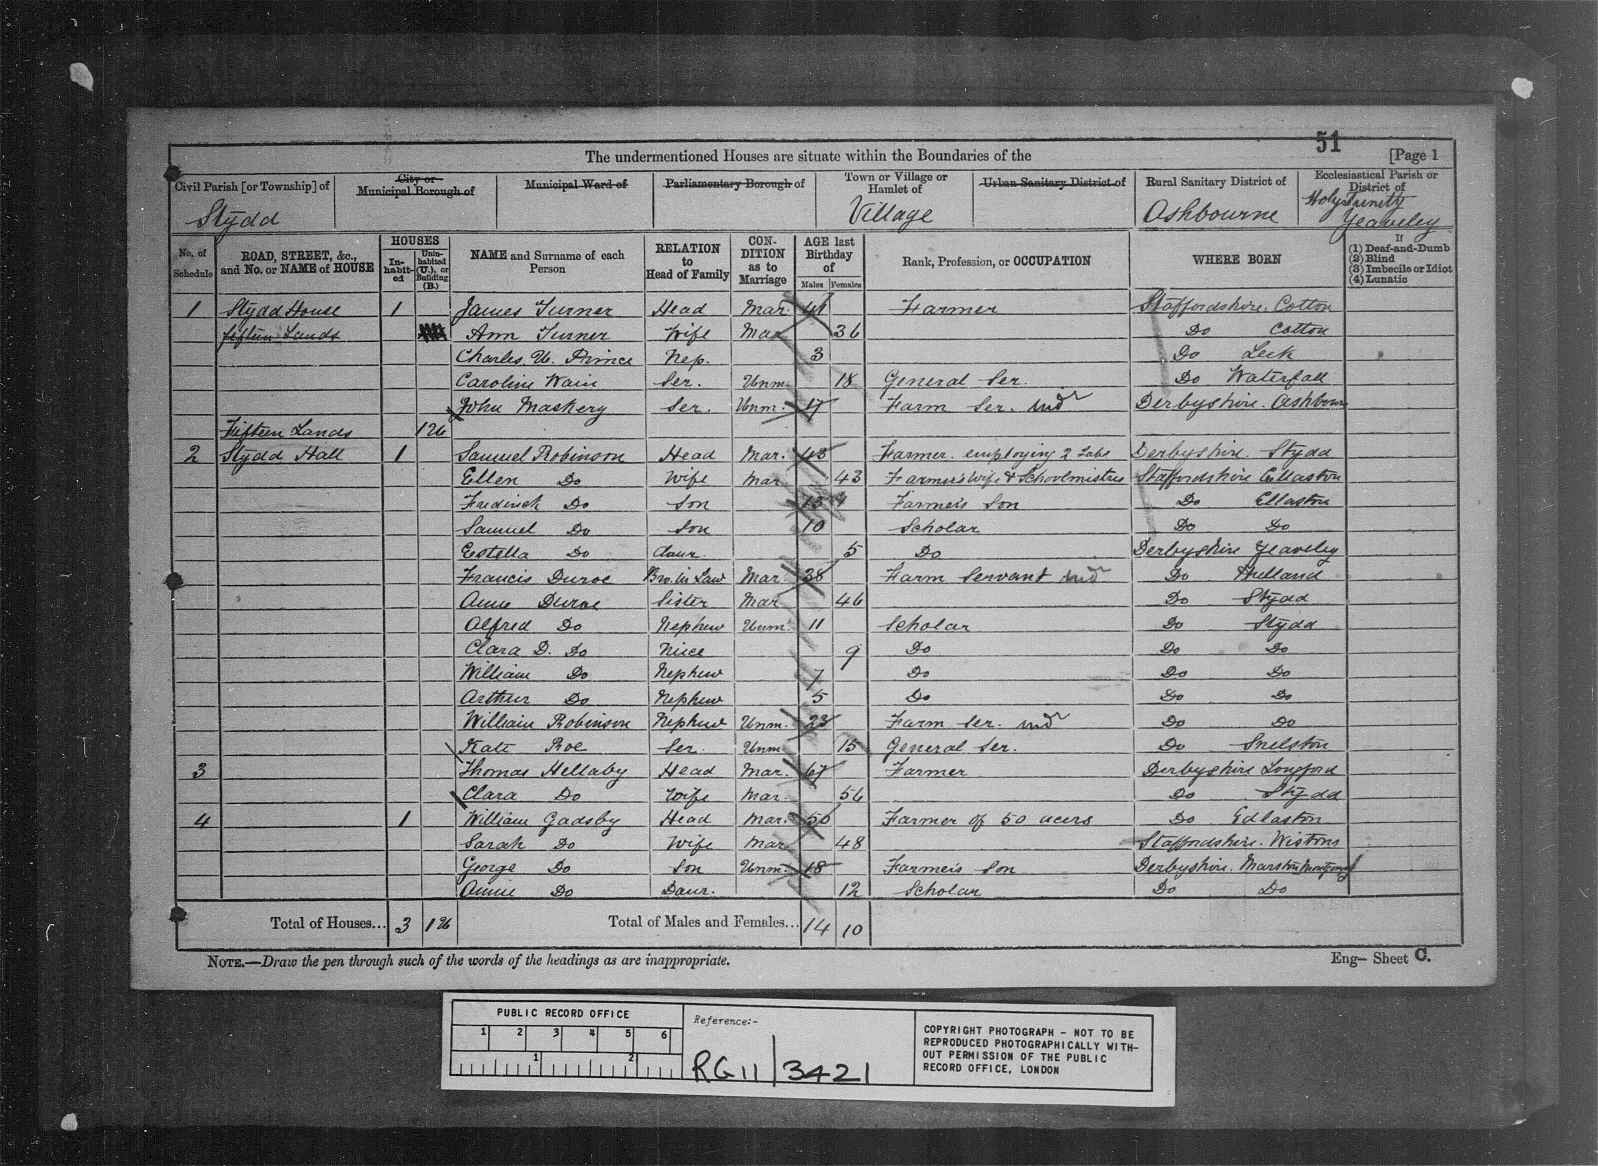 51
The undermentioned Houses are situate within the Boundaries of the [Page 1
Civil Parish [or Township] of City or Municipal Borough of Municipal Ward of Parliamentary Borough of Town or Village or Hamlet of Urban Sanitary District of Rural Sanitary District of Ecclesiastical Parish or District of
Stydd Village Ashbourne Holy Trinity Yeaveley
No. of Schedule ROAD, STREET, &c., and No. or NAME of HOUSE HOUSES In-habit-ed Unin-habited (U.), or Building (B.) NAME and Surname of each Person RELATION to Head of Family CON-DITION as to Marriage AGE last Birthday of Males Females Rank, Profession, or OCCUPATION WHERE BORN If (1) Deaf-and-Dumb (2) Blind (3) Imbecile or Idiot (4) Lunatic
1 Stydd House 1 James Turner Head Mar. 41 Farmer Staffordshire. Cotton
fifteen Lands Ann Turner Wife Mar 36 Do Cotton
Charles U. Prince Nep. 3 Do Leek
Caroline Wain Ser. Unm. 18 General Ser. Do Waterfall
John Maskery Ser. Unm. 17 Farm Ser. ind Derbyshire. Ashbourn
Fifteen Lands 1 U
2 Stydd Hall 1 Samuel Robinson Head Mar. 43 Farmer employing 2 Labs Derbyshire. Stydd
Ellen Do Wife Mar 43 Farmer's Wife & Schoolmistres Staffordshire Ellaston
Fredirick Do Son 13 Farmer's Son Do Ellaston
Samuel Do Son 10 Scholar Do Do
Estella Do daur 5 Do Derbyshire Yeaveley
Francis Duroe Bro. in Law Mar 38 Farm Servant ind Do Hulland
Anne Duroe Sister Mar 46 Do Stydd
Alfred Do Nephew Unm. 11 Scholar Do Stydd
Clara D. Do Niece 9 Do Do Do
William Do Nephew 7 Do Do Do
Arthur Do Nephew 5 Do Do Do
William Robinson Nephew Unm. 23 Farm Ser. ind Do Do
Kate Roe Ser. Unm 15 General Ser. Do Snelston
3 Thomas Hellaby Head Mar. 67 Farmer Derbyshire Longford
Clara Do Wife Mar. 56 Do Stydd
4 1 William Gadsby Head Mar. 50 Farmer of 50 acers Do Edlaston
Sarah Do Wife Mar 48 Staffordshire.
George Do Son Unm. 18 Farmer's Son Derbyshire. Marston Montgomy
Annie Do Daur. 12 Scholar Do Do
Total of Houses... 3 1 U Total of Males and Females... 14 10
NOTE.—Draw the pen through such of the words of the headings as are inappropriate. Eng– Sheet C.
PUBLIC RECORD OFFICE
1 2 3 4 5 6
1 2
Reference:-
RG 11 / 3421
COPYRIGHT PHOTOGRAPH - NOT TO BE
REPRODUCED PHOTOGRAPHICALLY WITH-
OUT PERMISSION OF THE PUBLIC
RECORD OFFICE, LONDON